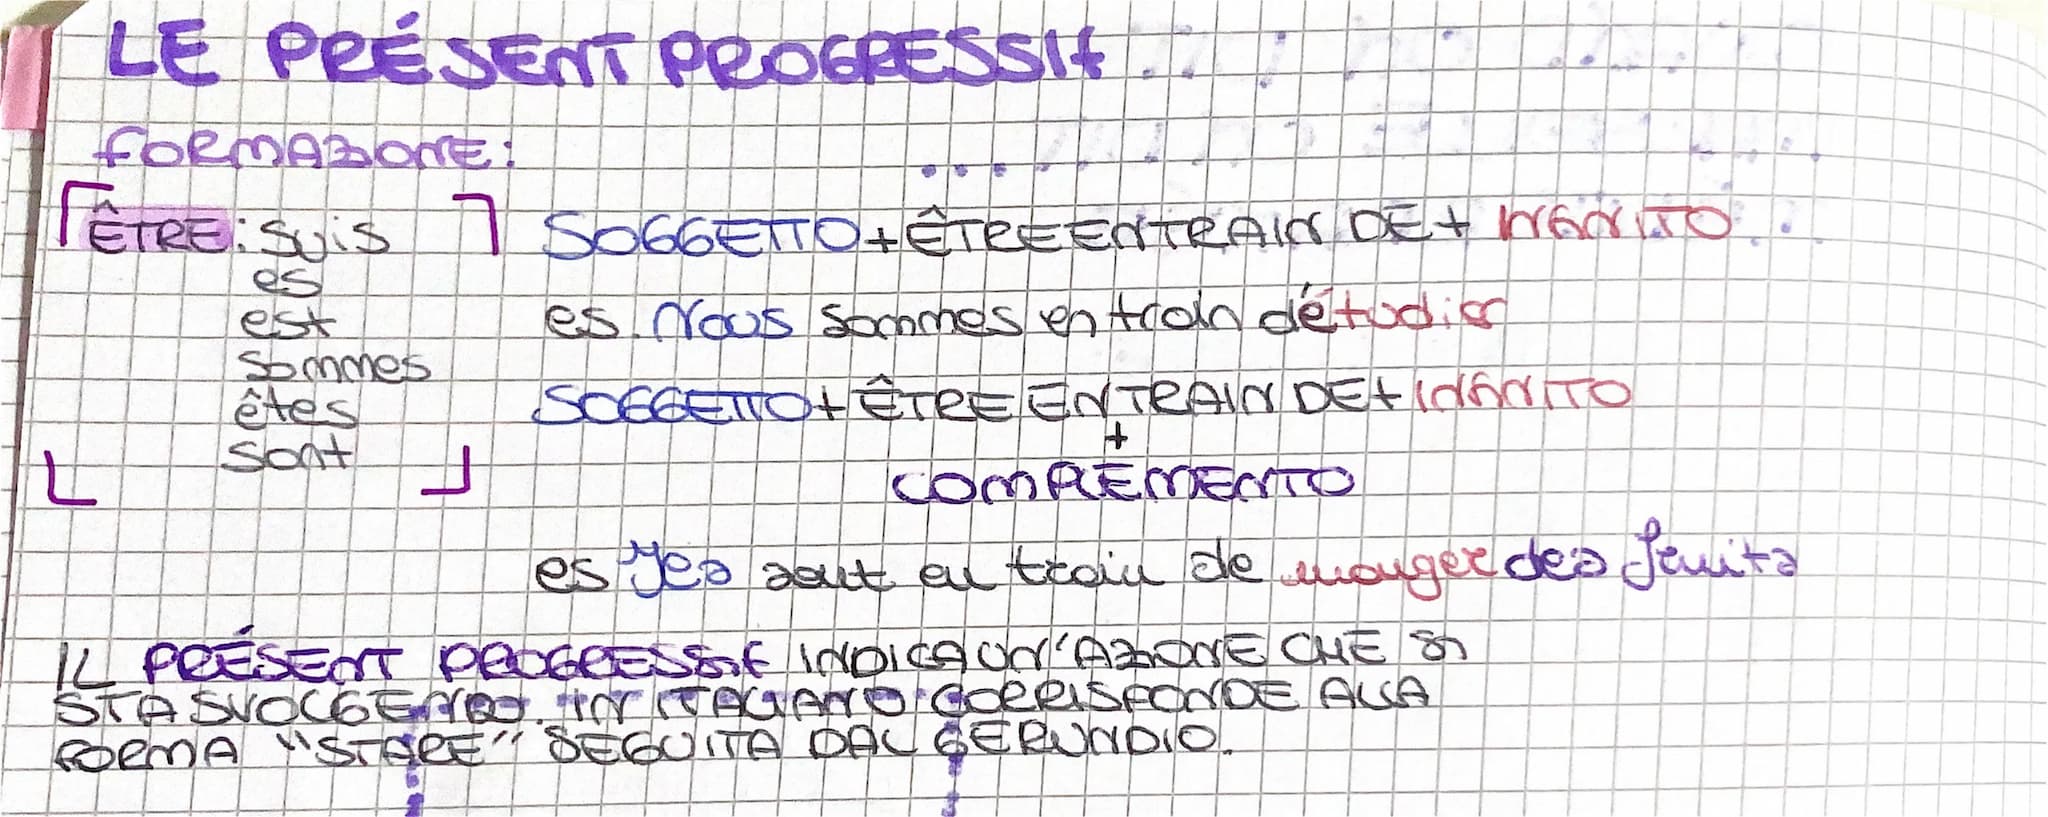 LE PRÉSENT PROGRESSIf
fORMAZIONE:
ÊTRE: suis
es
est
sommes
êtes
sont
SOGGETTO + ÊTRE EN TRAIN DE + INFINITO
es. Nous sommes en train d'étudier
SOGGETTO + ÊTRE EN TRAIN DE + INFINITO
+
COMPLEMENTO
es Ils sont en train de manger des fruits
IL PRÉSENT PROGRESSIf INDICA UN'AZIONE CHE SI
STA SVOLGENDO. IN ITALIANO CORRISPONDE ALLA
FORMA "STARE" SEGUITA DAL GERUNDIO.